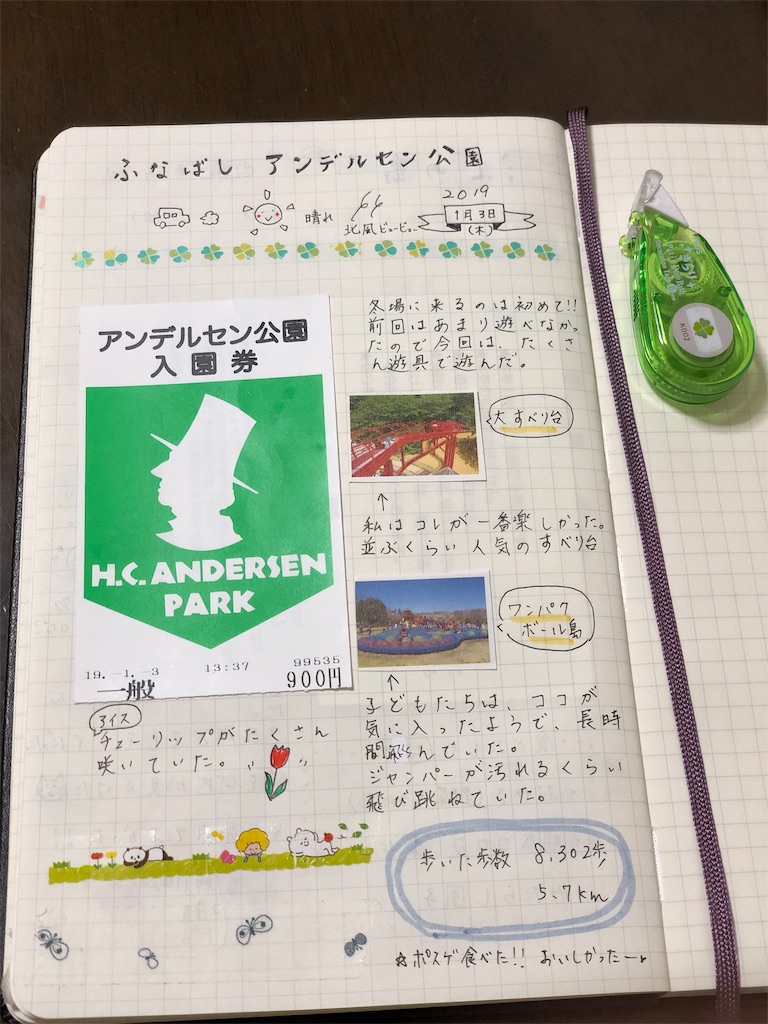 ふなばし アンデルセン公園
晴れ
北風ビュービュー
2019
1月3日
(木)
アンデルセン公園
入園券
H.C. ANDERSEN
PARK
19.-1.-3 13:37 99535
一般 900円
アイス
チューリップがたくさん
咲いていた。
冬場に来るのは初めて!!
前回はあまり遊べなかっ
たので今回は、たくさ
ん遊具で遊んだ。
大すべり台
↑
私はコレが一番楽しかった。
並ぶくらい人気のすべり台
ワンパク
ボール島
↑
子どもたちは、ココが
気に入ったようで、長時
間飛んでいた。
ジャンパーが汚れるくらい
飛び跳ねていた。
歩いた歩数 8,302歩
5.7km
☆ポスゲ食べた!! おいしかったー♥